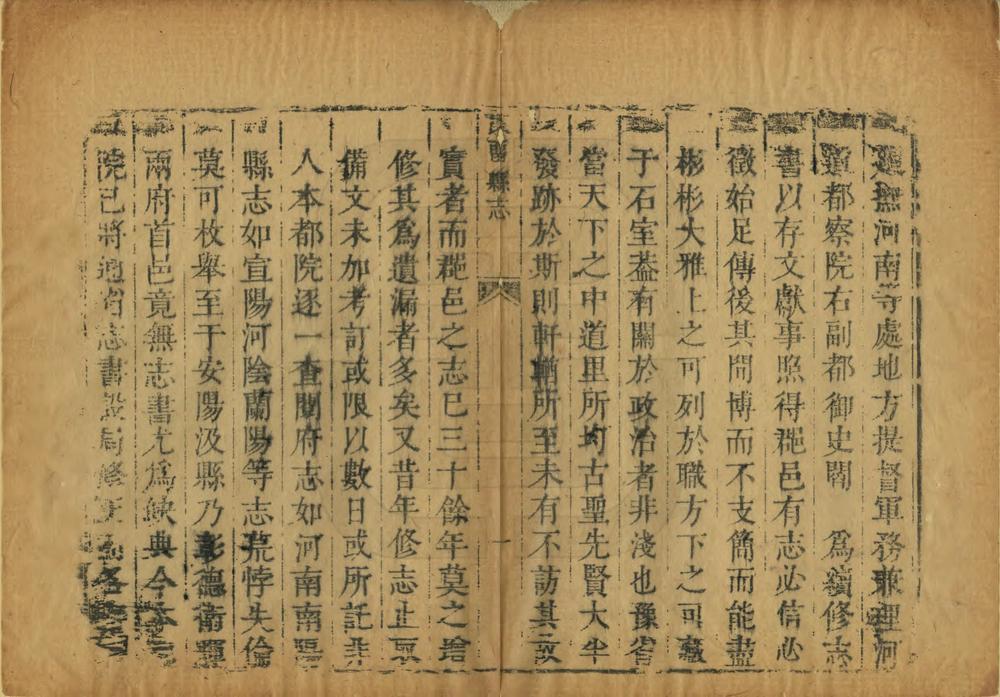 巡撫河南等處地方提督軍務兼理河
道都察院右副都御史閻　為續修志
書以存文獻事照得郡邑有志必信必
徵始足傳後其間博而不支簡而能盡
彬彬大雅上之可列於職方下之可藏
于石室葢有關於政治者非淺也豫省
當天下之中道里所均古聖先賢大半
發跡於斯則軒輶所至未有不訪其
縣志
一
實者而郡邑之志已三十餘年莫之增
修其為遺漏者多矣又昔年修志止
備文未加考訂或限以數日或所託非
人本都院逐一查閱府志如河南南陽
縣志如宜陽河陰蘭陽等志荒悖失倫
莫可枚舉至于安陽汲縣乃彰德衛輝
兩府首邑竟無志書尤為缺典今本
院已將通省志書設局修